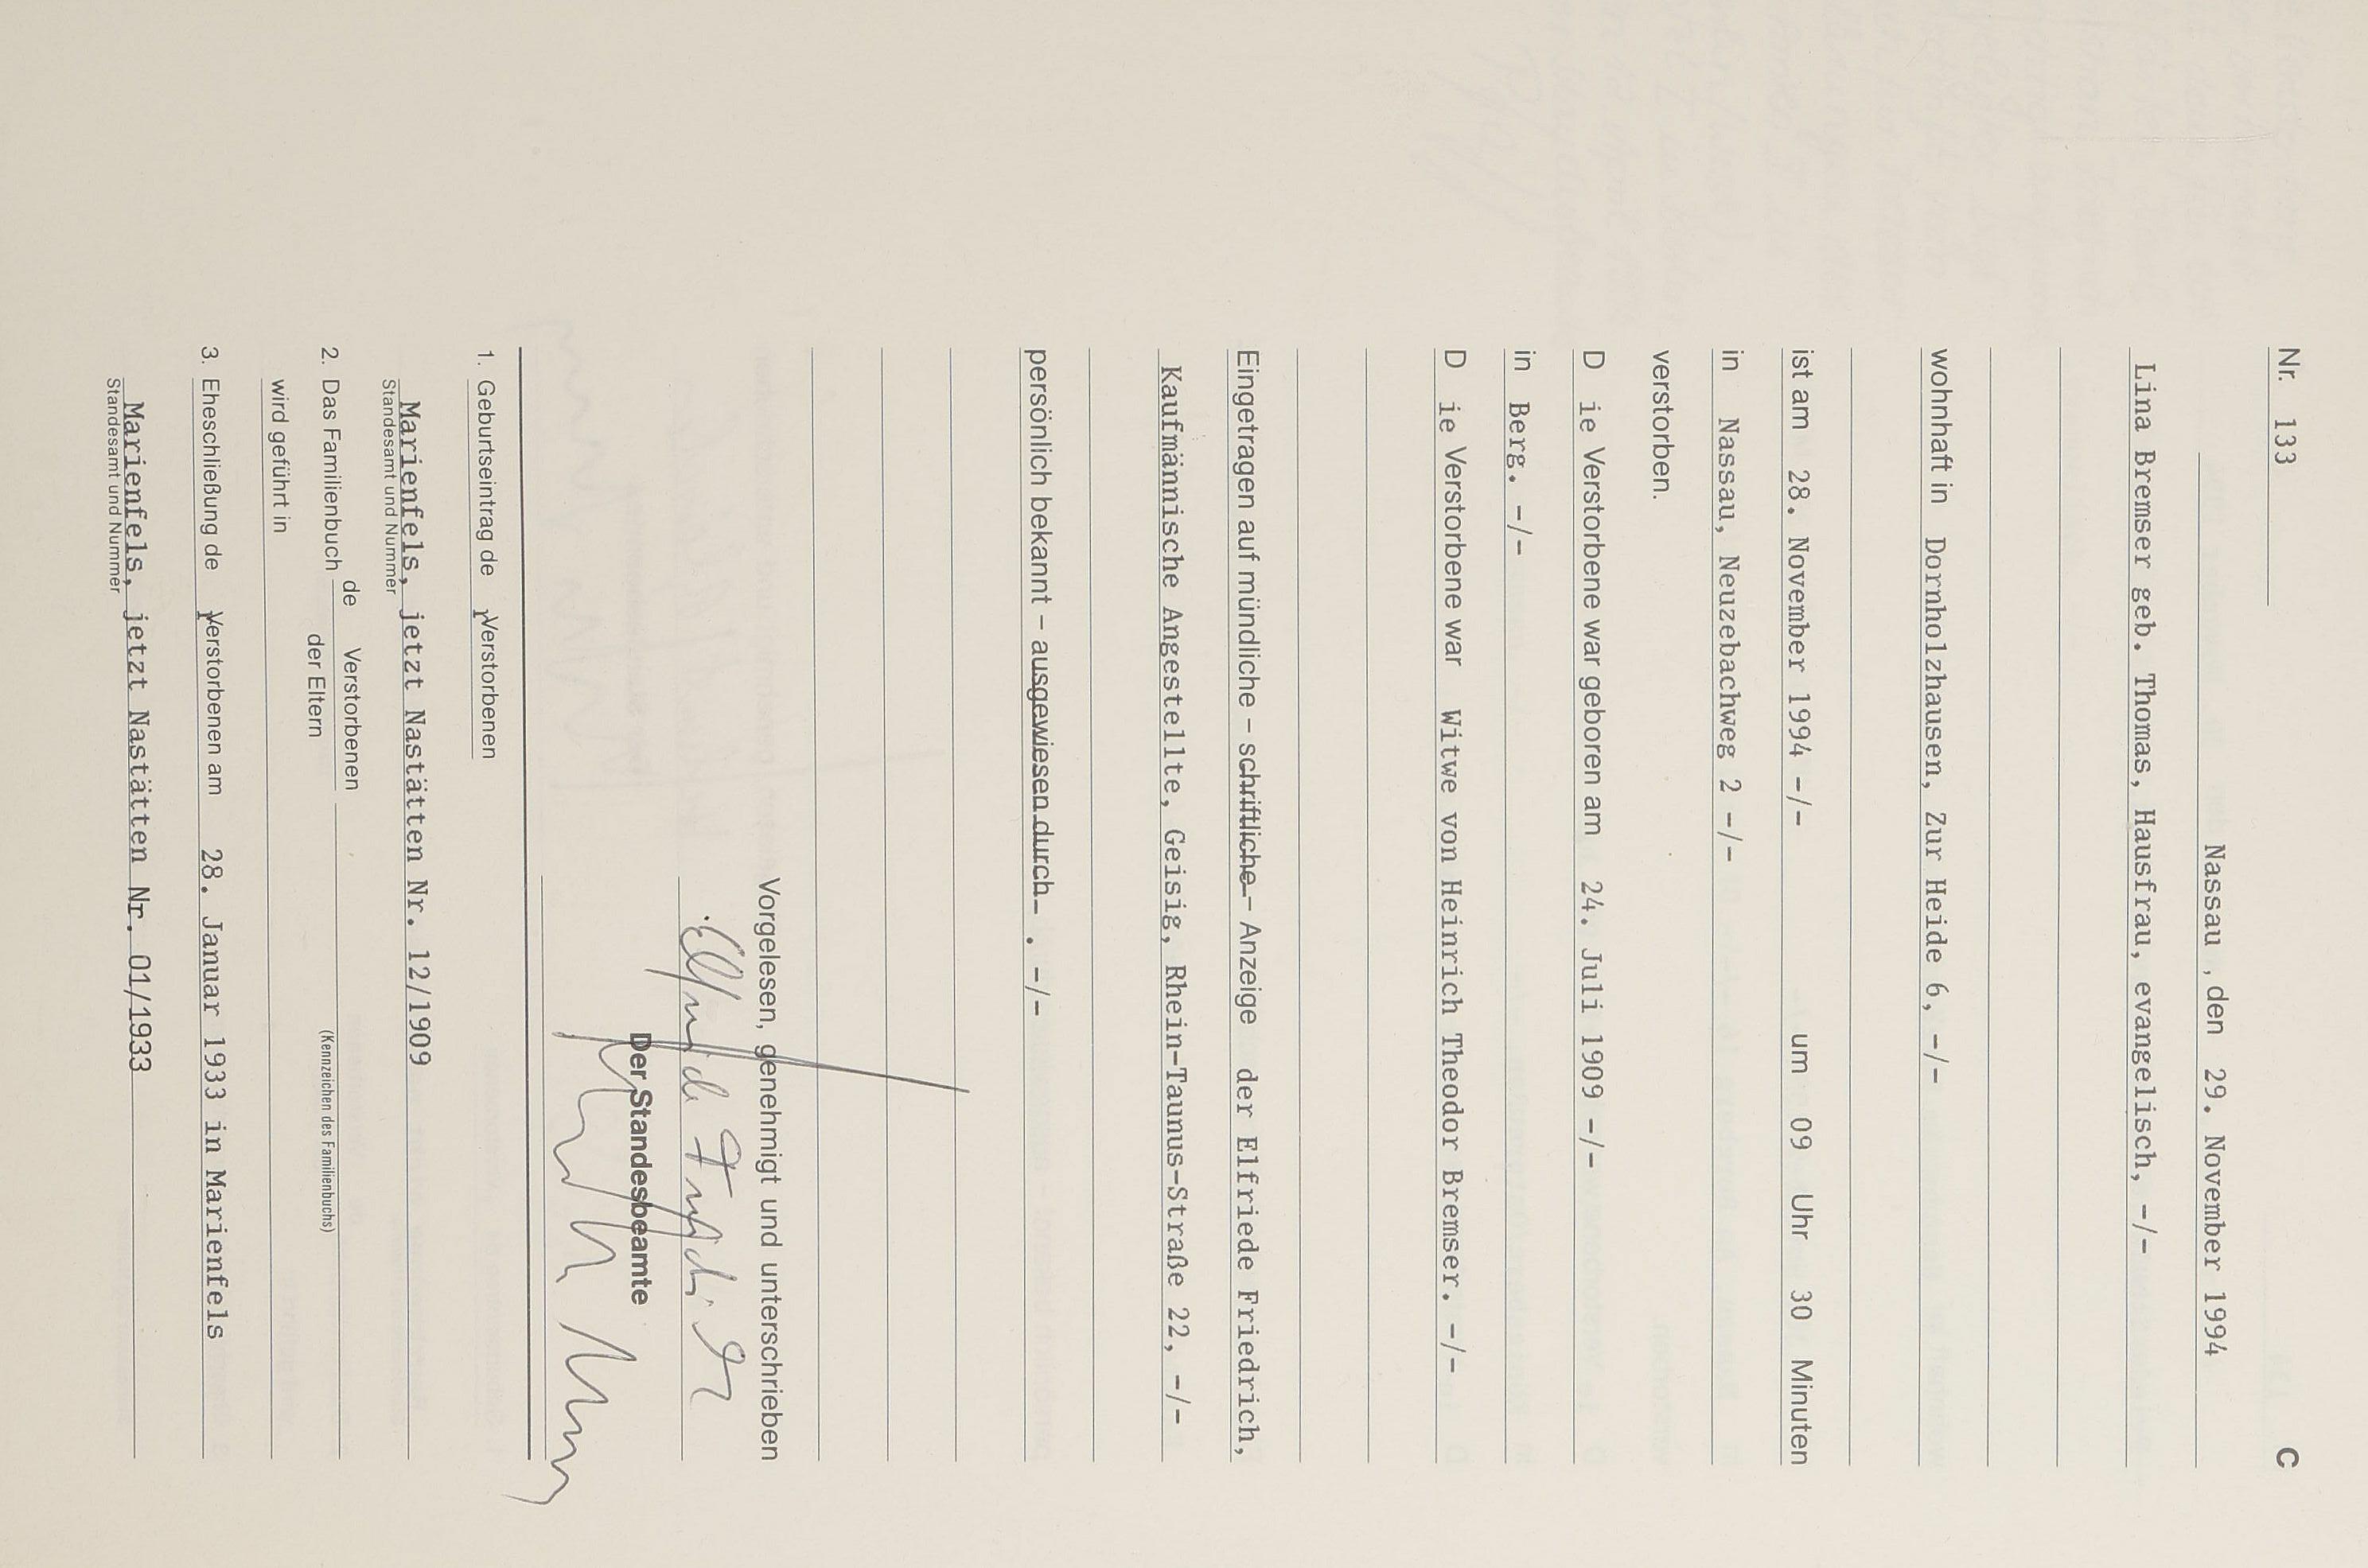 Nr. 133 C
Nassau , den 29. November 1994
Lina Bremser geb. Thomas, Hausfrau, evangelisch, -/-
wohnhaft in Dornholzhausen, Zur Heide 6, -/-
ist am 28. November 1994 -/- um 09 Uhr 30 Minuten
in Nassau, Neuzebachweg 2 -/-
verstorben.
D ie Verstorbene war geboren am 24. Juli 1909 -/-
in Berg. -/-
D ie Verstorbene war Witwe von Heinrich Theodor Bremser. -/-
Eingetragen auf mündliche – schriftliche – Anzeige der Elfriede Friedrich,
Kaufmännische Angestellte, Geisig, Rhein-Taunus-Straße 22, -/-
persönlich bekannt – ausgewiesen durch – . -/-
Vorgelesen, genehmigt und unterschrieben
Elfriede Friedrich
Der Standesbeamte
1. Geburtseintrag de r Verstorbenen
Marienfels, jetzt Nastätten Nr. 12/1909
Standesamt und Nummer
de Verstorbenen
2. Das Familienbuch
der Eltern
(Kennzeichen des Familienbuchs)
wird geführt in
3. Eheschließung de r Verstorbenen am 28. Januar 1933 in Marienfels
Marienfels, jetzt Nastätten Nr. 01/1933
Standesamt und Nummer